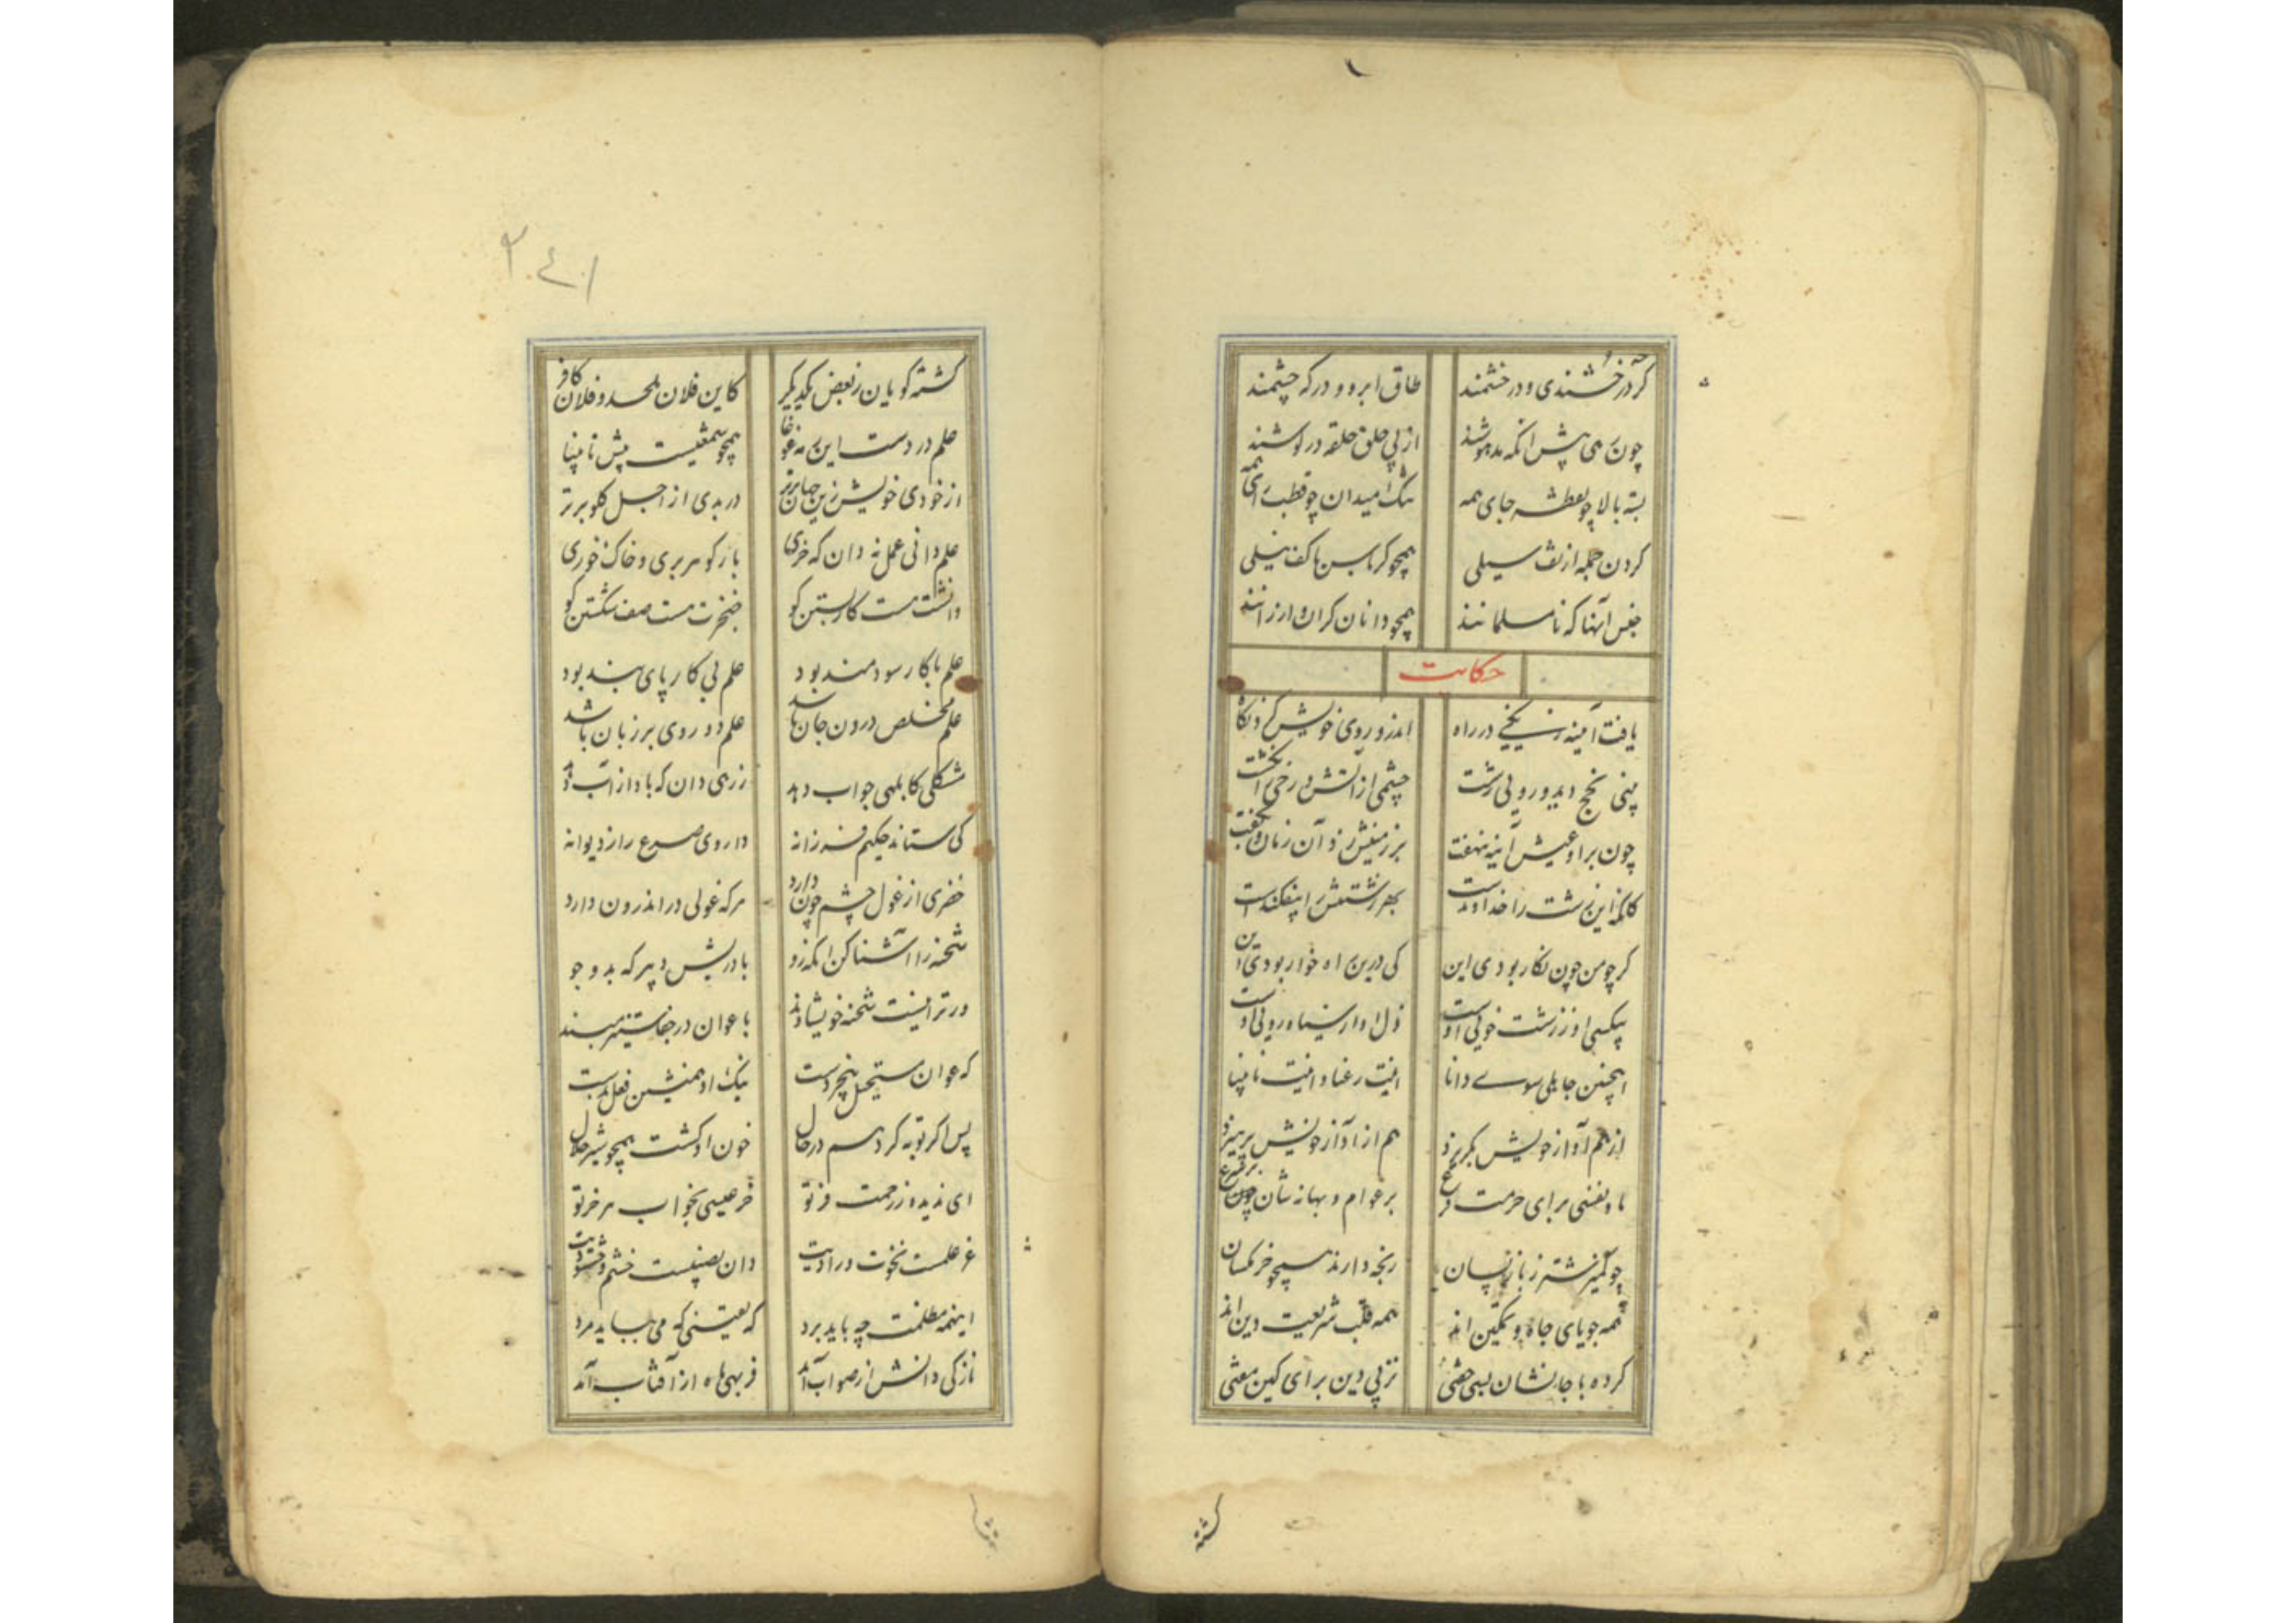 گر در خشندی و در خشمند طاق ابرو و درگه چشمند
چون می پیش آنکه مدهوشند از پی حلق حلقه در گوشند
بسته بالا چو بقطه جای همه تنگ میدان چو قطب رای همه
گردن جمله از تف سیلی همچو کرباس با کف نیلی
جنس آنها که نامسلمانند همچو دانان گران و ارزانند
حکایت
یافت آیینه زنگیی در راه اندرو روی خویش کرد نگاه
بینی پخج دید و رویی زشت چشمی از آتش و رخی ز انگشت
چون برو عیبش آینه ننهفت بر زمینش زد آن زمان و بگفت
کانکه این زشت را خداوندست بهر زشتیش را بیفکندست
گر چو من چون نگار بودی این کی درین راه خوار بودی این
بیکسی او ز زشت خویی اوست ذل او از سیاه رویی اوست
اینچنین جاهلی سوی دانا اینت رعنا و اینت نابینا
از هم آواز خویش بگریزد هم از آواز خویش بپرهیزد
نا و نفسی برای حرمت فرع بر عوام و بهانه شان چون شرع
چو گمیز شتر ز باز پسان رنجه دارند همچو خر مگسان
همه جویای جاه و تمکین اند همه قلب شریعت و دین اند
کرده با جانشان بسی حقی نز پی دین برای کین مفتی
گشته
۲۴۱
گشته گویان ز بغض یکدیگر کاین فلان ملحد و فلان کافر
علم در دست این همه غوغا همچو شمعیست پیش نابینا
از خودی خویش زین جهان برتر در بدی از اجل گلوبرتر
علم دانی عمل نه دان که خری بار گوهر بری و خاک خوری
دانشت هست کار بستن کو خنجرت هست صف شکستن کو
علم با کار سودمند بود علم بی کار پای بند بود
علم مخلص درون جان باشد علم دو روی بر زبان باشد
مشکلی کابلهی جواب دهد زرهی دان که باد از آب دهد
کی ستاند حکیم فرزانه داروی صرع را ز دیوانه
خضری از غول چشم چون دارد هر که غولی در اندرون دارد
شحنه را آشنا کن آنکه زو با درشی و پیر که بد و جو
ور ترا نیست شحنه خویشاوند با عوان در جنا ستیز مبند
که عوان مستحیل پنجه دست نیک او همنشین فعل بدست
پس اگر توبه کرد هم در حال خون او گشت همچو شیر حلال
ای ندیده ز رحمت فر تو خر عیسی بخواب هر خر تو
غر علمست نخوت در ادبیت دان بصیست خشم و خشنودیت
اینهمه مظلمت چه باید برد که یقینی که می بباید مرد
نازکی دانش از صواب آمد فربهی ماه از آفتاب آمد